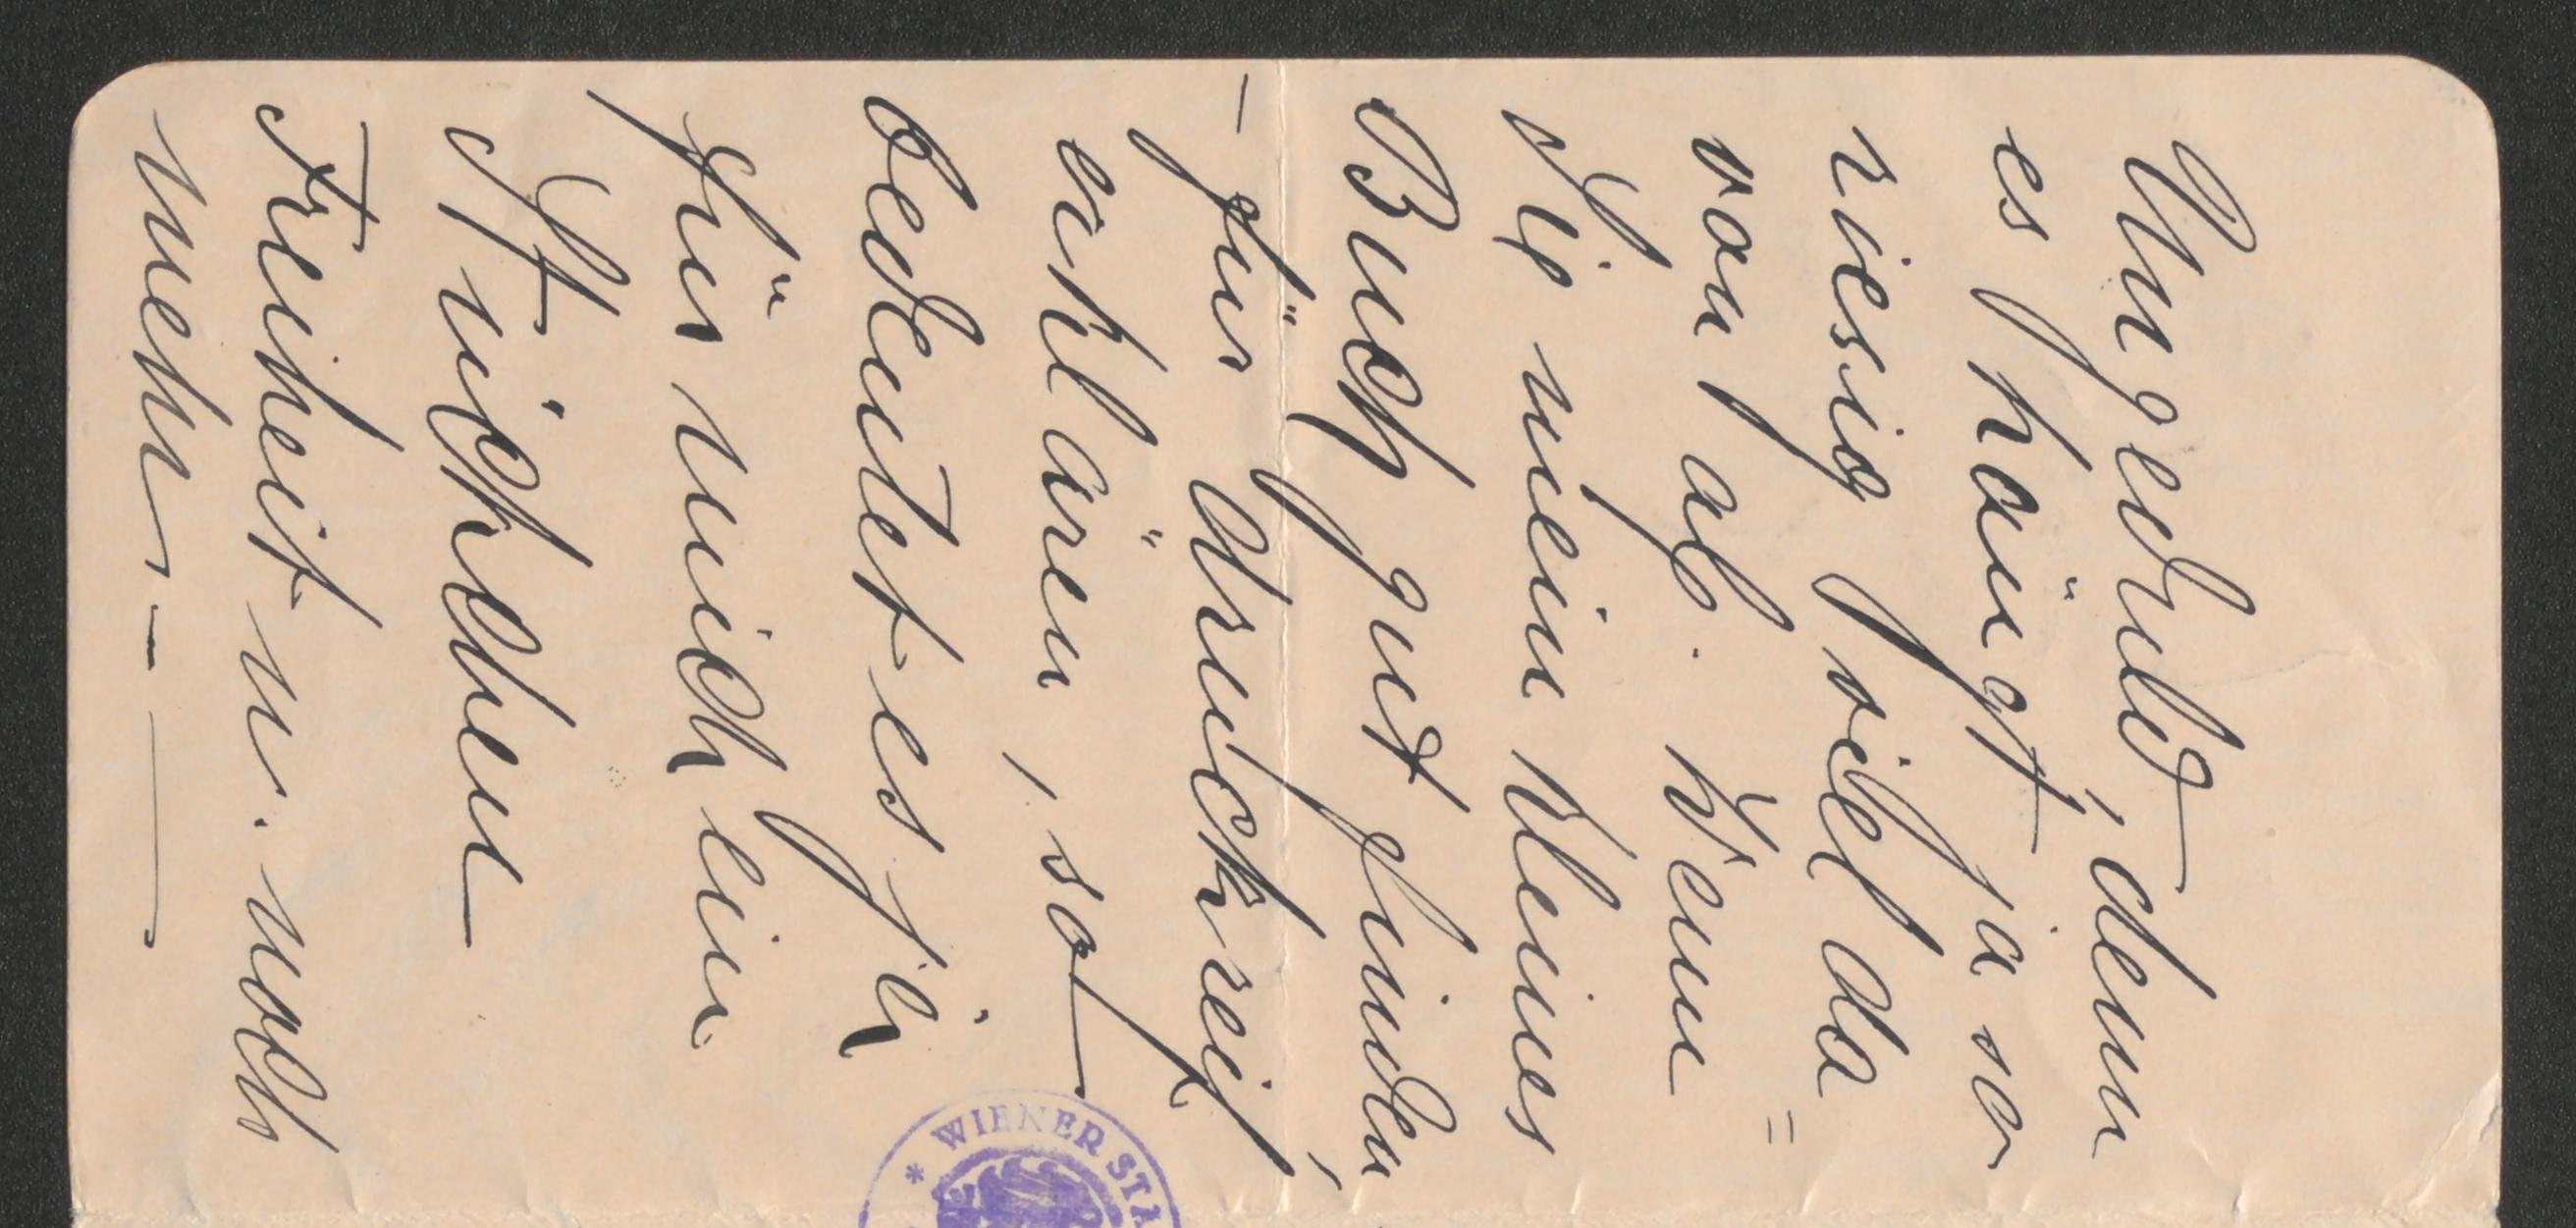 Ungeduld, denn
es hängt ja so
riesig viel da=
von ab. Wenn
Sie mein kleines
Buch gut finden,
– für druckreif
erklären, so
bedeutet es ja
für mich ein
Stückchen
Freiheit u. noch
mehr – —
* WIENER STA